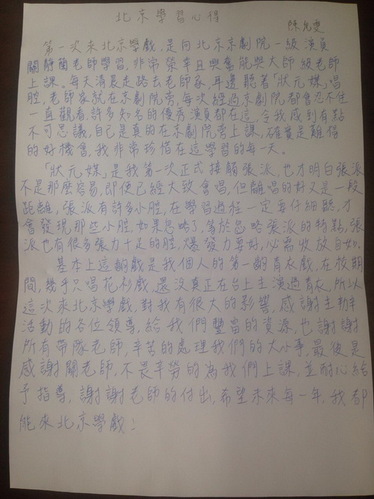 北京學習心得
陳允雯
第一次來北京學戲,是向北京京劇院一級演員
關靜蘭老師學習,非常榮幸且興奮能與大師級老師
上課。每天清晨走路去老師家,耳邊聽著「狀元媒」唱
腔,老師家就在京劇院旁,每次經過京劇院都會忍不住
一直觀看,許多知名的優秀演員都在這,令我感到有點
不可思議,自己是真的在京劇院旁上課,確實是難得
的好機會,我非常珍惜在這的每一天。
「狀元媒」是我第一次正式接觸張派,也才明白張派
不是那麼容易,即使已經大致會唱,但離唱的好又是一段
距離,張派有許多小腔,在學習過程一定要仔細聽,才
會發現那些小腔,如果忽略了,等於忽略張派的特點,張
派也有很多張力十足的腔,爆發力要好,必需收放自如。
基本上這齣戲是我個人的第一齣青衣戲,在校期
間,幾乎只唱花衫戲,還沒真正在台上主演過青衣,所以
這次來北京學戲,對我有很大的影響,感謝主辦
活動的各位領導,給我們豐富的資源,也謝謝
所有帶隊老師,辛苦的處理我們的大小事,最後是
感謝關老師,不是辛勞的為我們上課,並耐心給
予指導,謝謝老師的付出,希望未來每一年,我都
能來北京學戲!